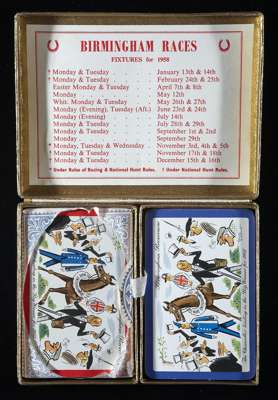 BIRMINGHAM RACES
FIXTURES for 1958
* Monday & Tuesday . . . . January 13th & 14th
* Monday & Tuesday . . . . February 24th & 25th
Easter Monday & Tuesday . . April 7th & 8th
Monday . . . . . . May 12th
Whit. Monday & Tuesday . . May 26th & 27th
Monday (Evening), Tuesday (Aft.) June 23rd & 24th
Monday (Evening) . . . . July 14th
Monday & Tuesday . . . . July 28th & 29th
Monday & Tuesday . . . . September 1st & 2nd
Monday . . . . . . September 29th
* Monday, Tuesday & Wednesday . November 3rd, 4th & 5th
† Monday & Tuesday . . . . November 17th & 18th
† Monday & Tuesday . . . . December 15th & 16th
* Under Rules of Racing & National Hunt Rules. † Under National Hunt Rules.